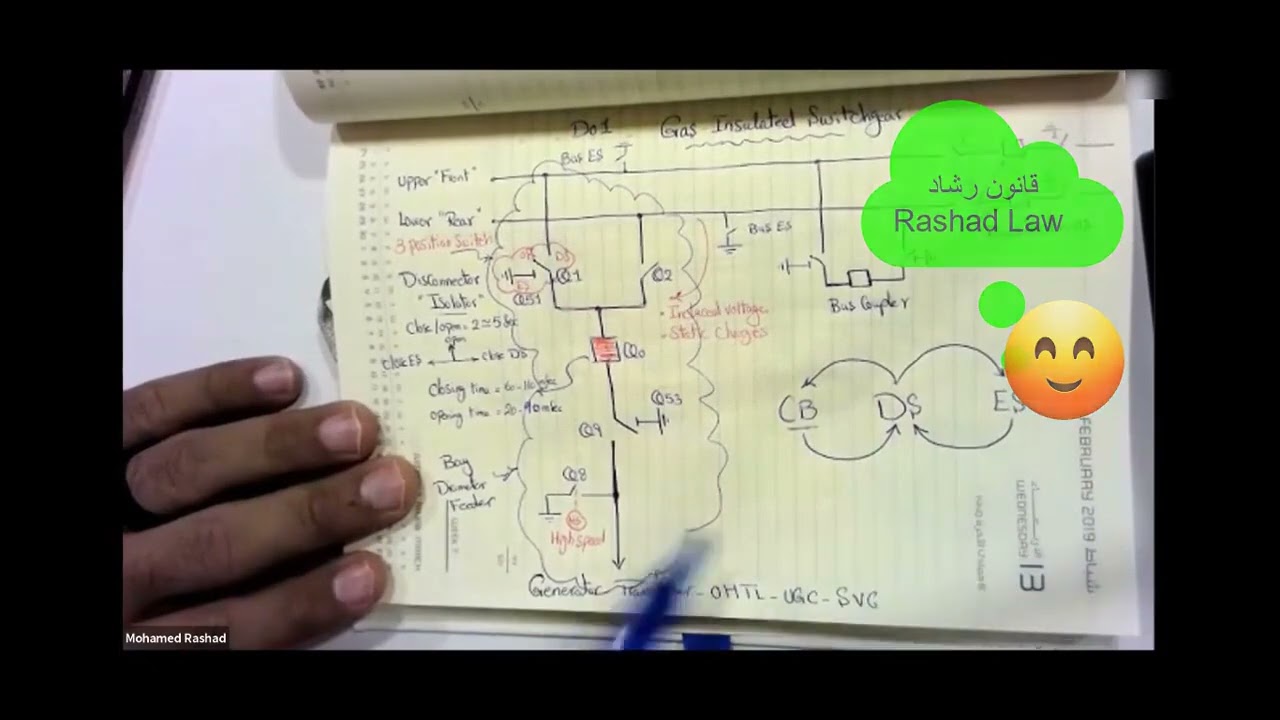 D01 Gas Insulated Switchgear
Bus ES
Upper "Front"
Lower "Rear"
Bus ES
3 position switch
DS
ES
Q1
Q2
Q51
Disconnector
"Isolator"
Close/open = 2 ≈ 5 Sec
open
Close ES
Close DS
Induced voltage
Static Charges
Bus Coupler
Q0
closing time =
opening time = 20-90 msec
Q53
Q9
Bay
Diameter
Feeder
Q8
High speed
Generator
- OHTL - UGC - SVC
CB DS ES
قانون رشاد
Rashad Law
WEEK 7
FEBRUARY 2019 شباط
WEDNESDAY
13
Mohamed Rashad